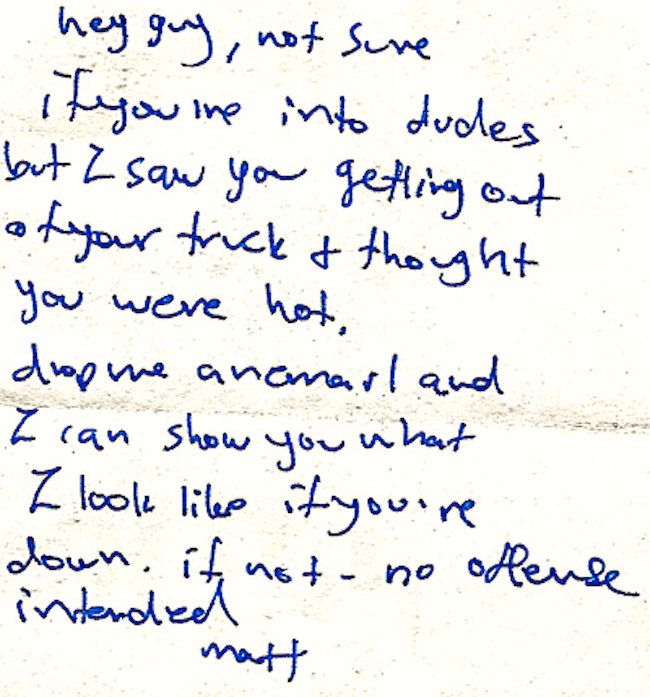 hey guy, not sure
if you're into dudes
but I saw you getting out
of your truck & thought
you were hot.
drop me an email and
I can show you what
I look like if you're
down. if not - no offense
intended
matt